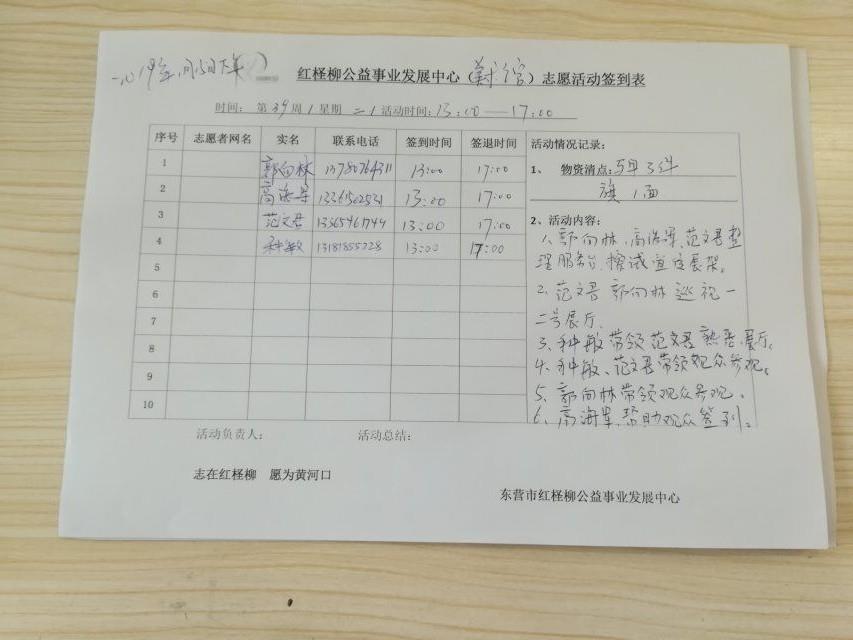 红柽柳公益事业发展中心（ ）志愿活动签到表
时间： 第39周 星期 活动时间：13:00—17:00
序号 志愿者网名 实名 联系电话 签到时间 签退时间
1 郭向林 13:00 17:00
2 高海军 13:00 17:00
3 范文君 13:00 17:00
4 种敏 13181855228 13:00 17:00
5
6
7
8
9
10
活动情况记录：
1、 物资清点： 3件
旗1面
2、活动内容：
1、郭向林、高海军、范文君整
理服务台、擦试宣传展架。
2、范文君 郭向林巡视一
二号展厅.
3、种敏带领范文君熟悉展厅。
4、种敏、范文君带领观众参观。
5、郭向林带领观众参观。
6、高海军、帮助观众签到。
活动负责人： 活动总结：
志在红柽柳 愿为黄河口
东营市红柽柳公益事业发展中心